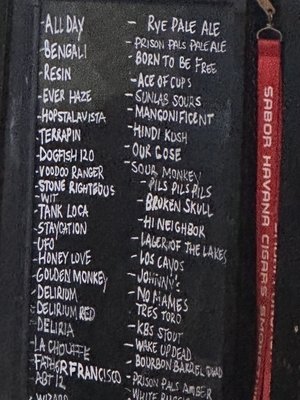 -ALL DAY
-BENGALI
-RESIN
-EVER HAZE
-HOPSTALAVISTA
-TERRAPIN
-DOGFISH 120
-VOODOO RANGER
-STONE RIGHTEOUS
-WIT
-TANK LOCA
-STAYCATION
-UFO
-HONEY LOVE
-GOLDEN MONKEY
-DELIRIUM
-DELIRIUM RED
-DELIRIA
-LA CHOUFFE
-FATHER FRANCISCO
ABT 12
-WIZARD
- RYE PALE ALE
-PRISON PALS PALE ALE
- BORN TO BE FREE
-ACE OF CUPS
-SUNLAB SOURS
-MANGONIFICENT
- HINDI KUSH
- OUR GOSE
-SOUR MONKEY
-PILS PILS PILS
- BROKEN SKULL
- HI NEIGHBOR
- LAGER OF THE LAKES
-LOS CAVOS
-JOHNNY'S
- NO MAMES
TRES TORO
- KBS STOUT
- WAKE UP DEAD
-BOURBON BARREL DEAD
-PRISON PALS AMBER
-WHITE RUSSIAN
SABOR HAVANA CIGARS